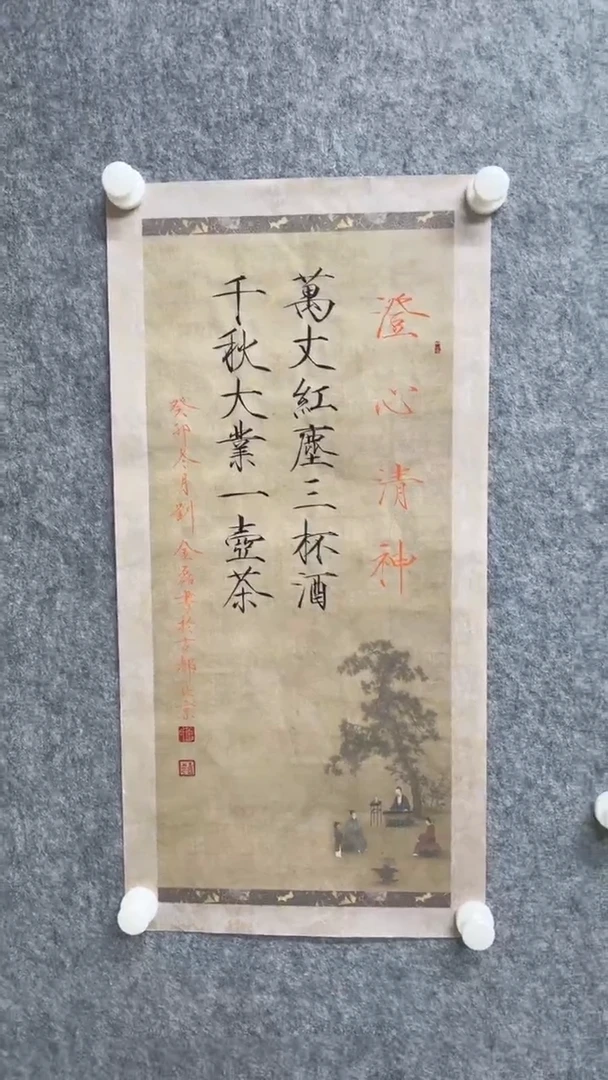 澄心清神
萬丈紅塵三杯酒
千秋大業一壺茶
癸卯冬月劉金磊書於古都北京